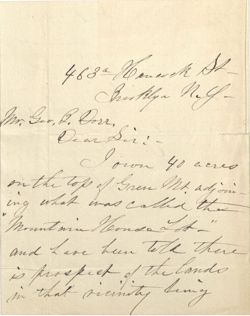 463a Hancock St-
Brooklyn N.Y-
Mr. Geo. B. Dorr.
Dear Sir:-
I own 40 acres
on the top of Green Mt. adjoin
ing what was called the
"Mountain House Lot-"
and have been told there
is prospect of the lands
in that vicinity being